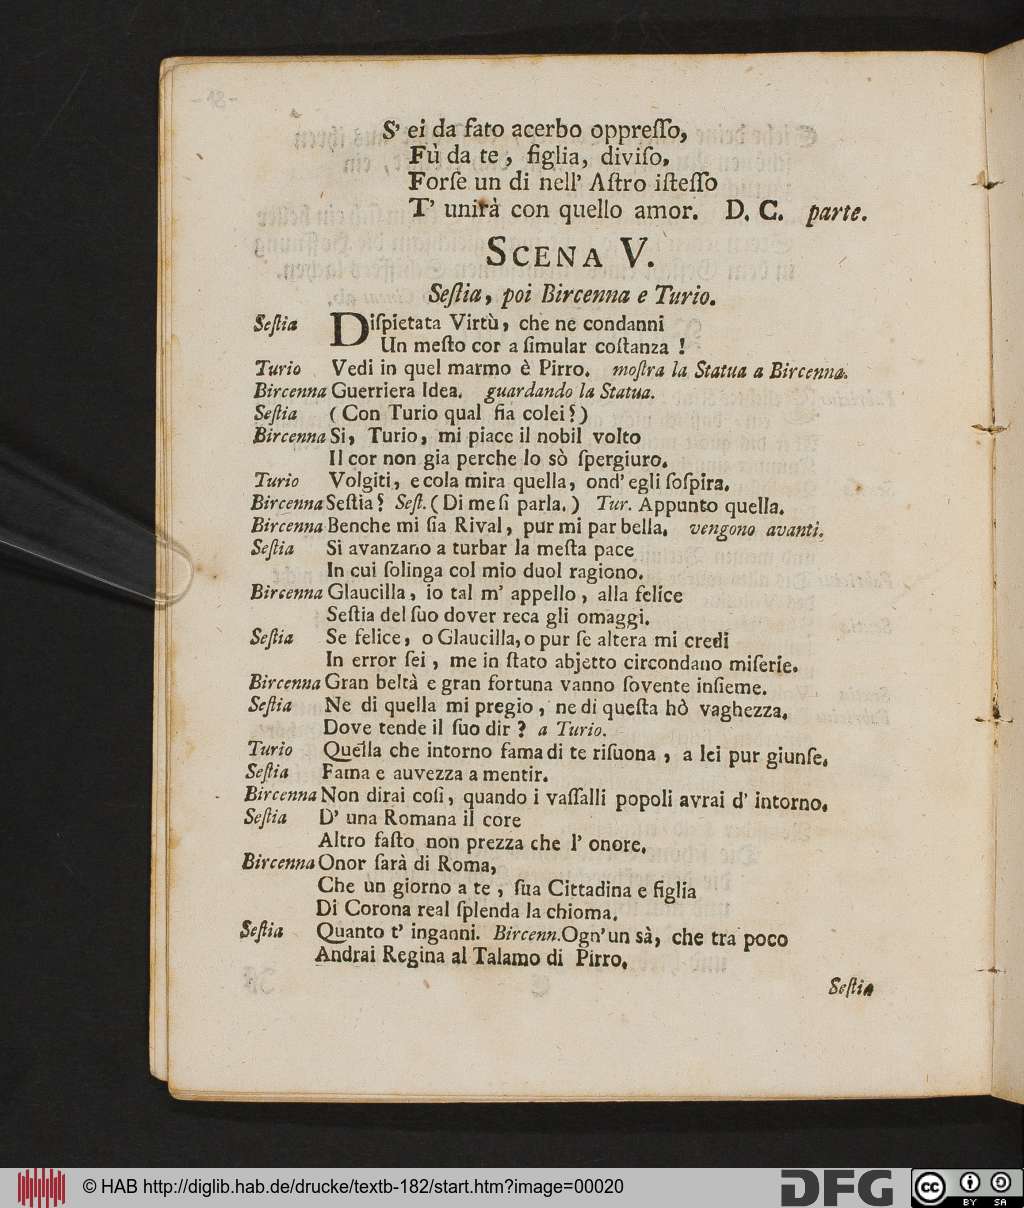 -18-
S' ei da fato acerbo oppreſſo,
Fù da te, figlia, diviſo,
Forſe un di nell' Aſtro iſteſſo
T' unirà con quello amor. D. C. parte.
SCENA V.
Seſtia, poi Bircenna e Turio.
Seſtia Diſpietata Virtù, che ne condanni
Un meſto cor a ſimular coſtanza !
Turio Vedi in quel marmo è Pirro. moſtra la Statua a Bircenna.
Bircenna Guerriera Idea. guardando la Statua.
Seſtia (Con Turio qual ſia colei?)
Bircenna Si, Turio, mi piace il nobil volto
Il cor non gia perche lo sò ſpergiuro.
Turio Volgiti, e cola mira quella, ond' egli ſoſpira.
Bircenna Seſtia? Seſt. (Di me ſi parla.) Tur. Appunto quella.
Bircenna Benche mi ſia Rival, pur mi par bella. vengono avanti.
Seſtia Si avanzano a turbar la meſta pace
In cui ſolinga col mio duol ragiono.
Bircenna Glaucilla, io tal m' appello, alla felice
Seſtia del ſuo dover reca gli omaggi.
Seſtia Se felice, o Glaucilla, o pur ſe altera mi credi
In error ſei, me in ſtato abjetto circondano miſerie.
Bircenna Gran beltà e gran fortuna vanno ſovente inſieme.
Seſtia Ne di quella mi pregio, ne di queſta hò vaghezza,
Dove tende il ſuo dir ? a Turio.
Turio Quella che intorno fama di te riſuona, a lei pur giunſe,
Seſtia Fama e auvezza a mentir.
Bircenna Non dirai coſi, quando i vaſſalli popoli avrai d' intorno,
Seſtia D' una Romana il core
Altro faſto non prezza che l' onore,
Bircenna Onor ſarà di Roma,
Che un giorno a te, ſua Cittadina e figlia
Di Corona real ſplenda la chioma.
Seſtia Quanto t' inganni. Bircenn. Ogn' un sà, che tra poco
Andrai Regina al Talamo di Pirro,
Seſtia
© HAB http://diglib.hab.de/drucke/textb-182/start.htm?image=00020
DFG
cc BY SA